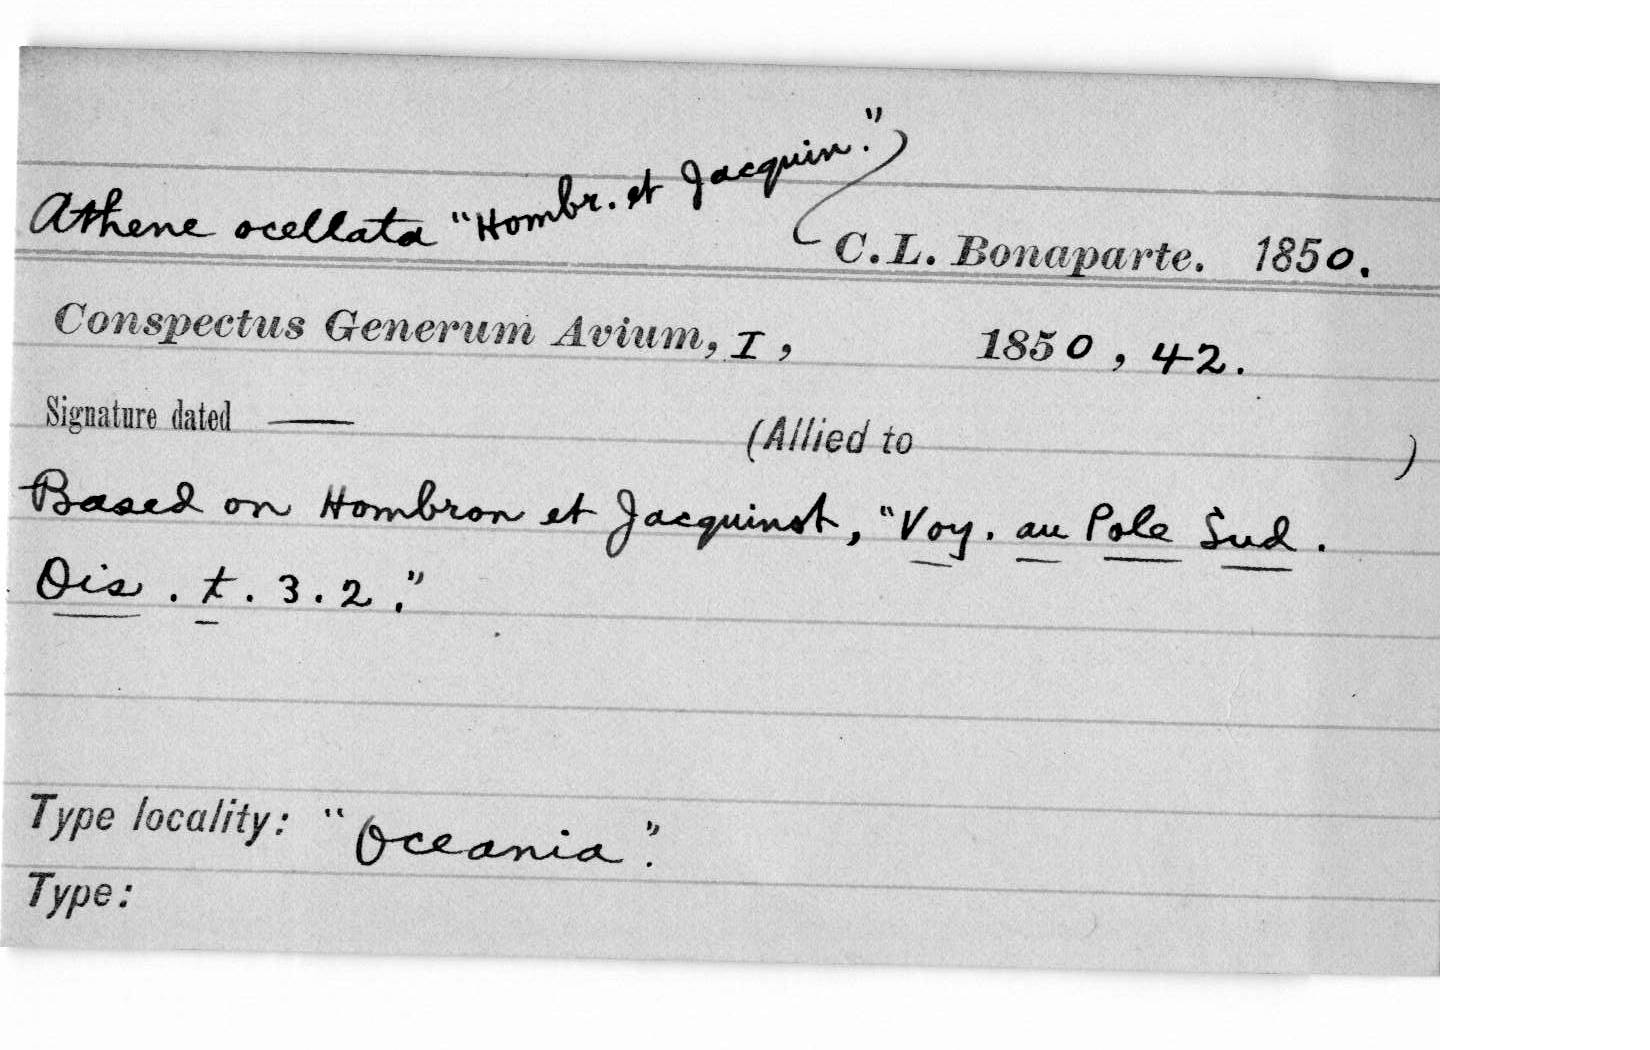 Athene ocellata "Hombr. et Jacquin."
C.L. Bonaparte. 1850.
Conspectus Generum Avium, I, 1850, 42.
Signature dated — (Allied to )
Based on Hombron et Jacquinot, "Voy. au Pole Sud.
Ois. t. 3.2."
Type locality: "Oceania".
Type: